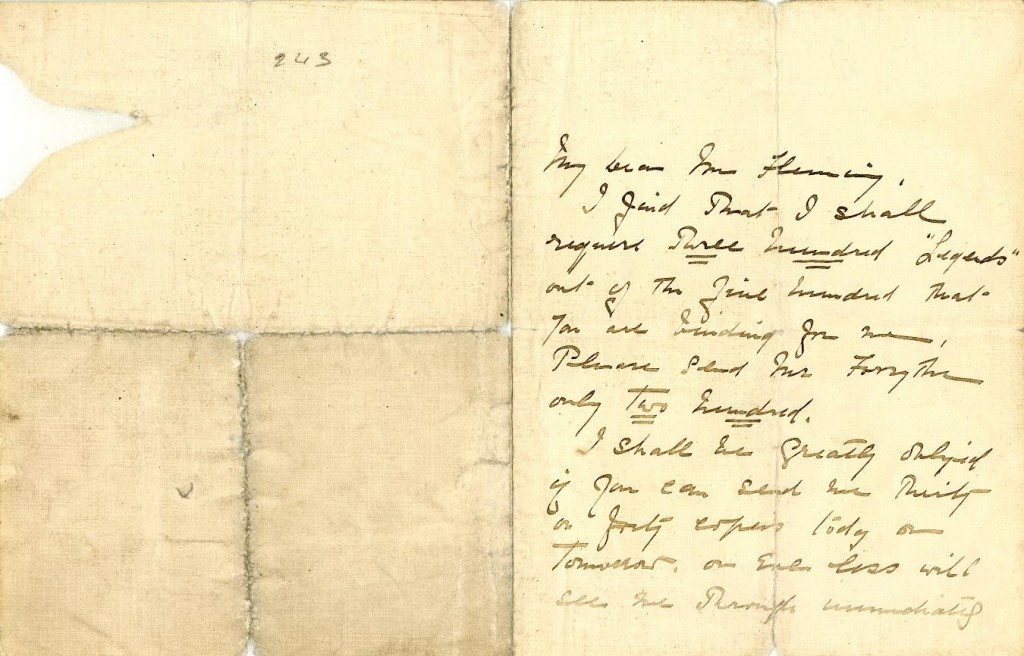 243
My dear Mr Fleming,
I find that I shall
require Three hundred "Legends"
out of the five hundred that
you are binding for me,
Please send Mr Forsythe
only Two hundred.
I shall be greatly obliged
if you can send me thirty
or forty copies today or
tomorrow. or even less will
see me through immediately